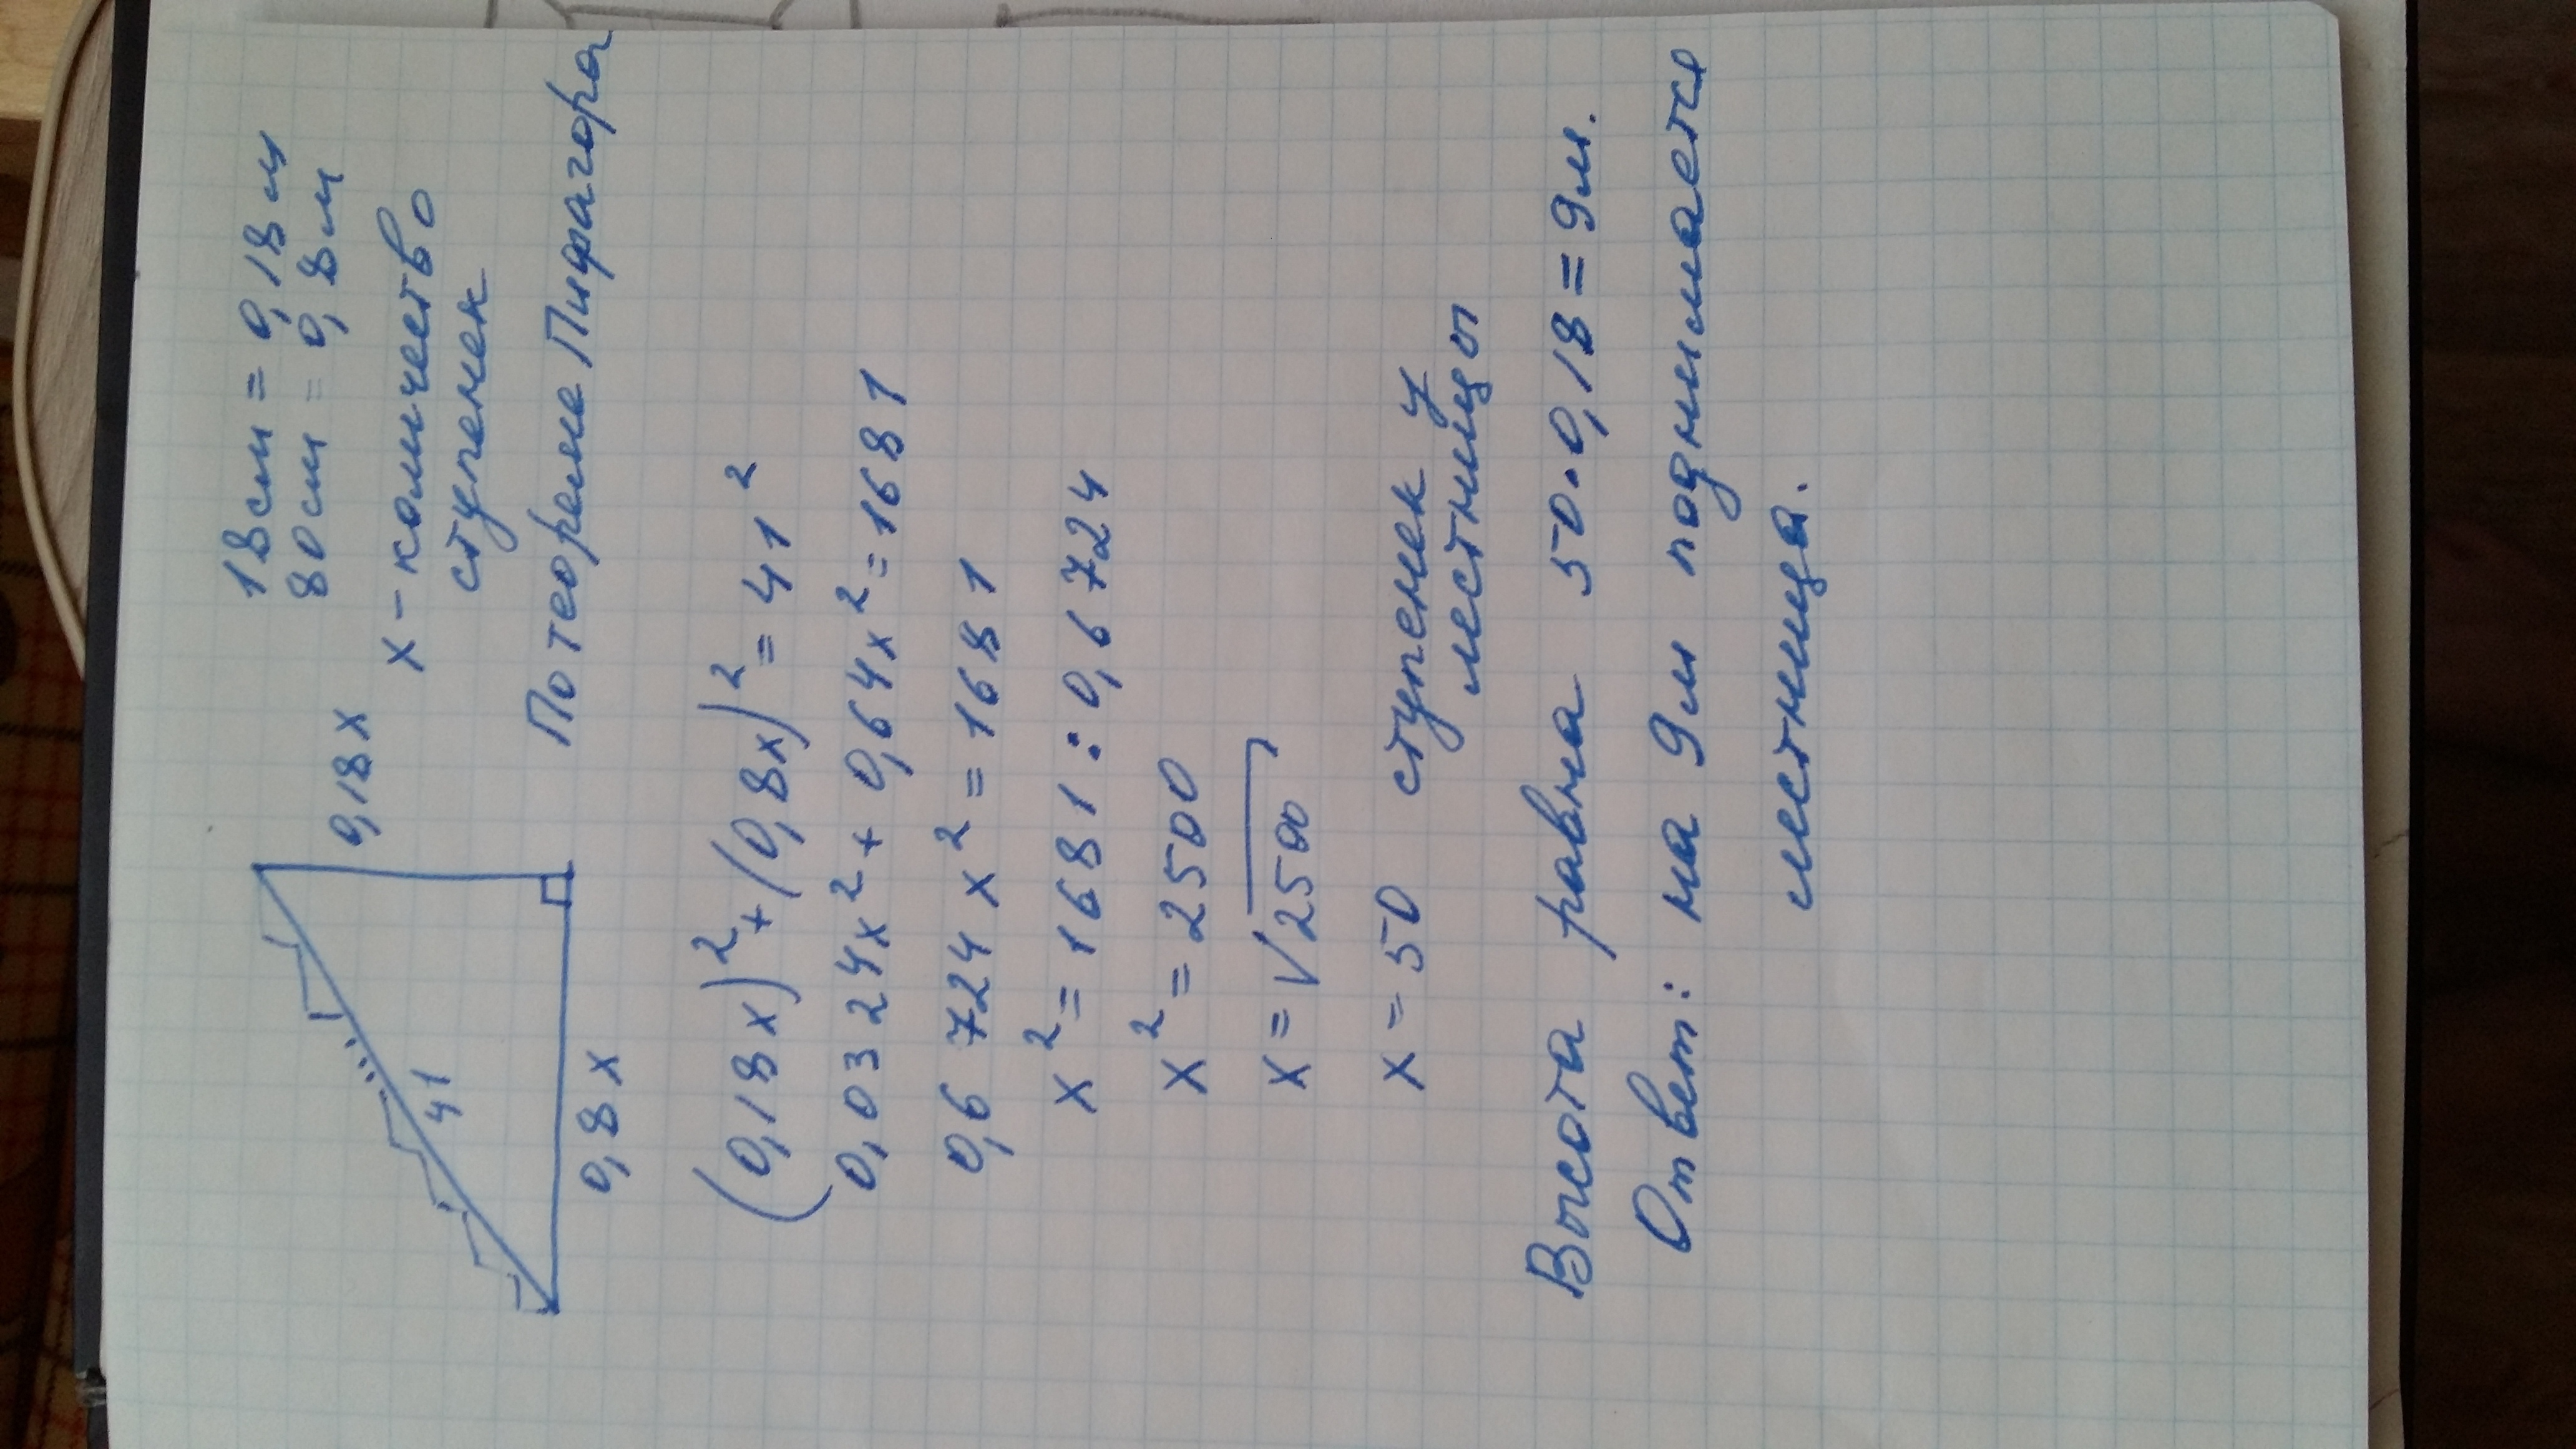 18см = 0,18м
80см = 0,8м
0,18x
x - количество
ступенек
41
0,8x
По теореме Пифагора
(0,18x)² + (0,8x)² = 41²
0,0324x² + 0,64x² = 1681
0,6724x² = 1681
x² = 1681 : 0,6724
x² = 2500
x = √2500
x = 50 ступенек у
лестницы
Высота равна 50·0,18=9м.
Ответ: на 9м поднимается
лестница.